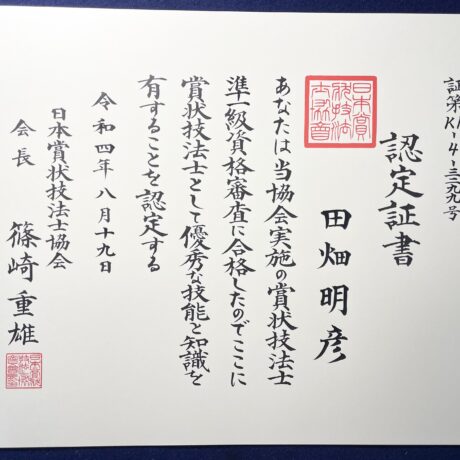 証第K1-4-三二九九号
認定証書
田畑明彦
あなたは当協会実施の賞状技法士
準一級資格審査に合格したのでここに
賞状技法士として優秀な技能と知識を
有することを認定する
令和四年八月十九日
日本賞状技法士協会
会長 篠崎重雄